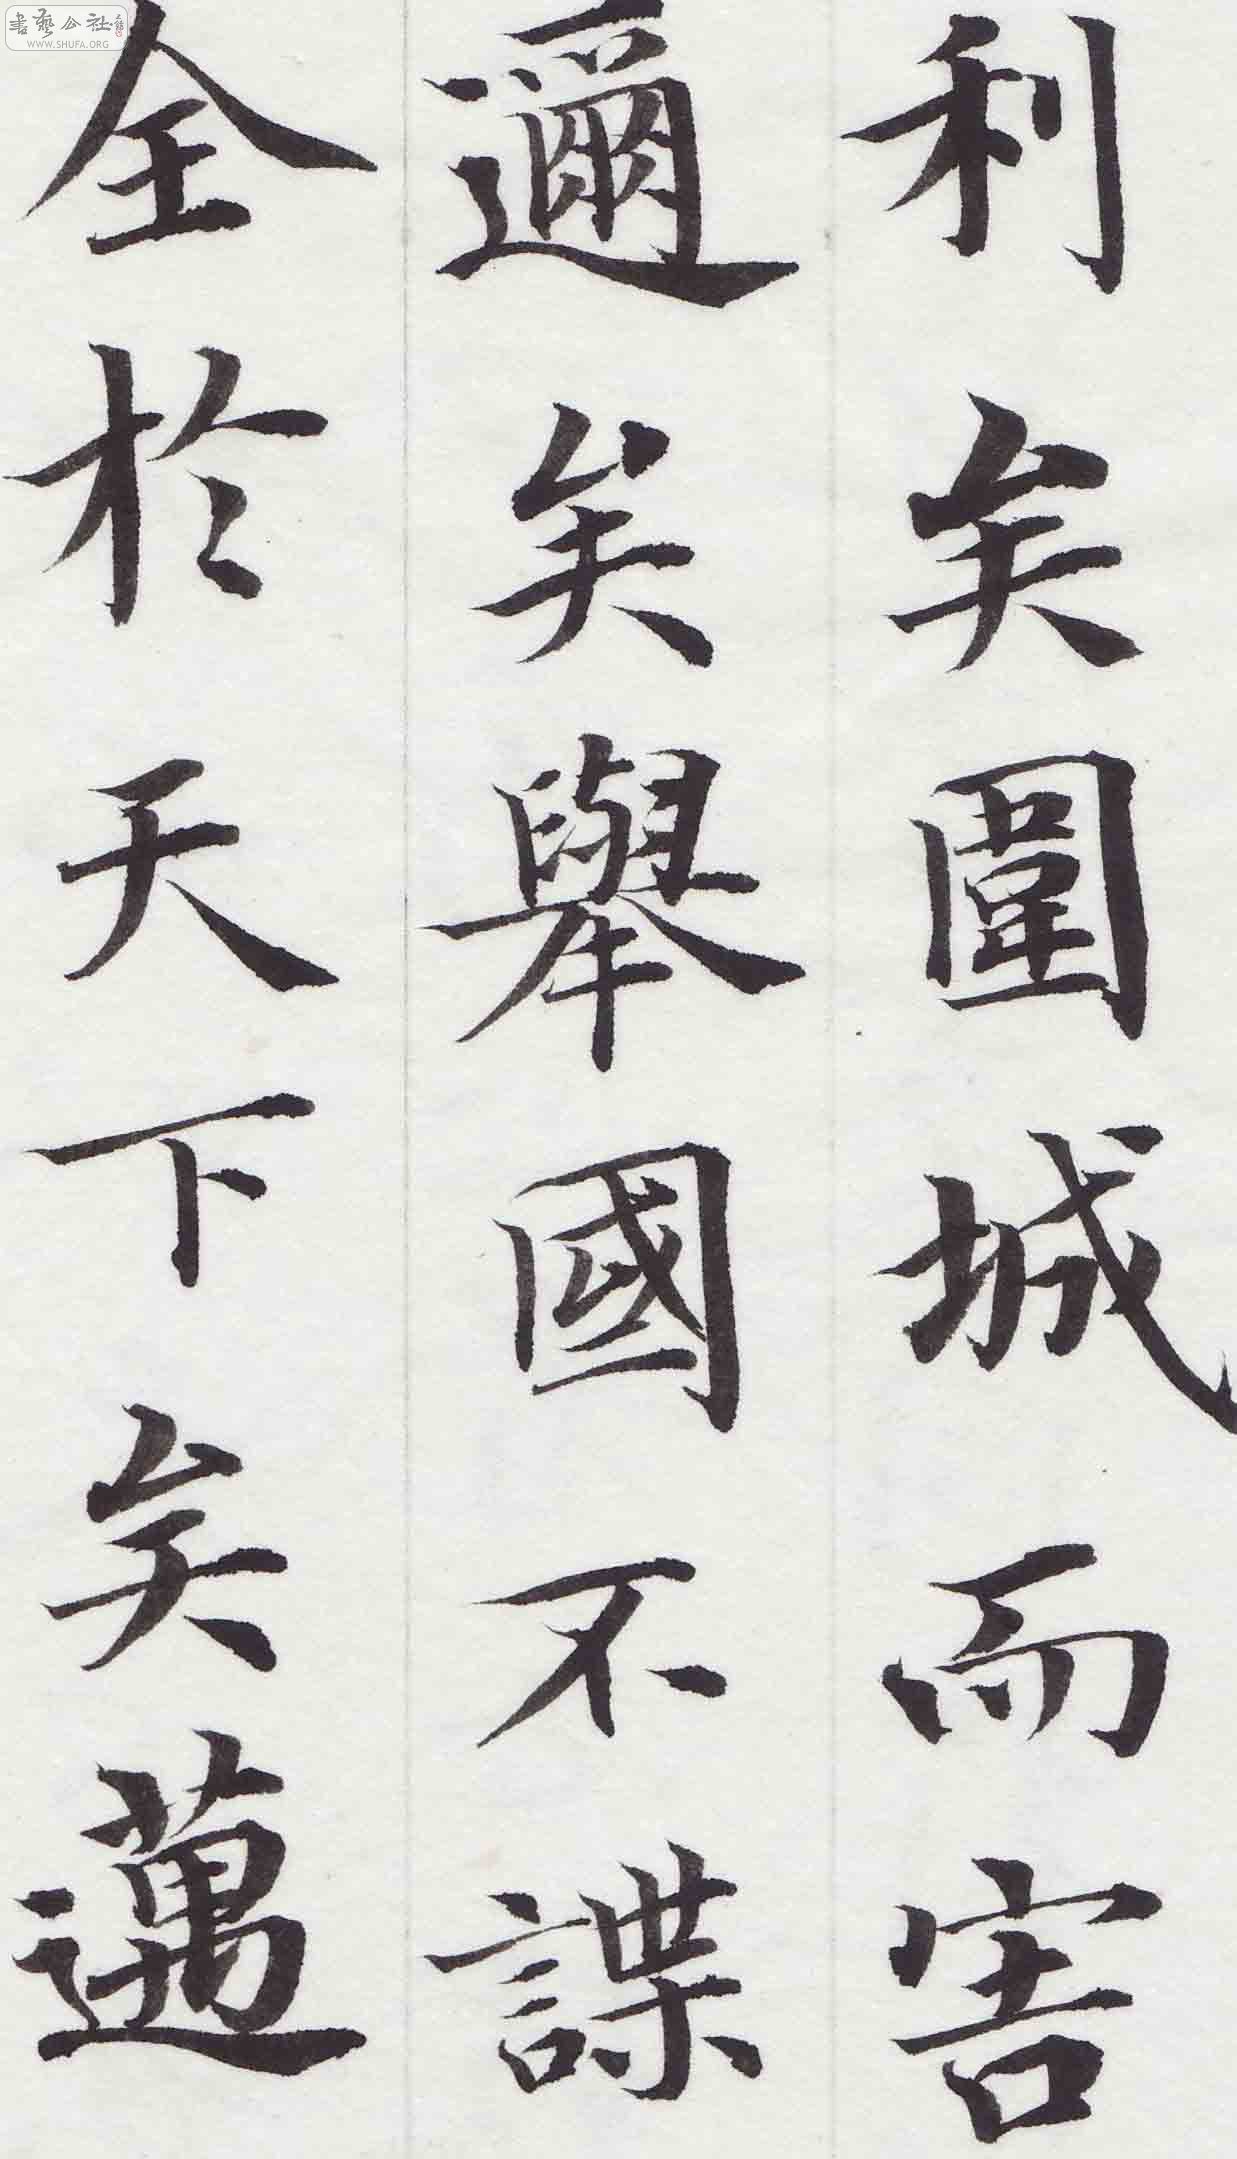 利矣圍城而害
邇矣舉國不諜
全於天下矣邁
書藝公社
WWW.SHUFA.ORG